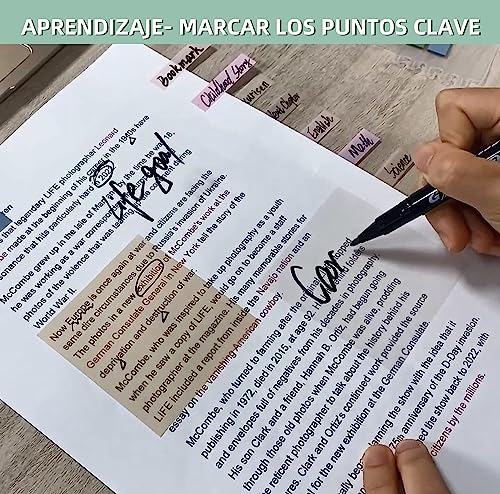 APRENDIZAJE- MARCAR LOS PUNTOS CLAVE
Bookmark
Childhood Story
English
Math
Science
that legendary LIFE photographer Leonard
made at the beginning of his in the 1940s have
resonance that has particularly hard 202
McCombe grew up in the Isle of Man the time he was 18,
he was working as a war correspondent
photos of the violence that was taking
World War II.
Life goal
Now is once again at war and citizens are facing the
same dire circumstances due to Russia's invasion of Ukraine.
The photos in a new exhibition of McCombe's work at the
German Consulate General in New York tell the story of the
depravation and destruction of
McCombe, who was inspired to take up photography as a youth
when he saw a copy of LIFE, would go on to become a staff
photographer at the magazine. His many memorable stories for
LIFE included a report from inside the Navajo nation and an
essay on the vanishing American cowboy
McCombe, who turned to farming after the original stopped
publishing in 1972, died in 2015, at age 92.
and envelopes full of negatives from his decades in photography.
His son Clark and a friend, Hannah C. Ortiz, had begun going
through those old photos when McCombe was alive, prodding
the reticent photographer to talk about the history behind the
Clark and Ortiz's continued work provided the source
for the new exhibition at the German Consulate.
planning the show with the idea that it
75th anniversary of the D-Day invasion.
the show back to 2022, with
citizens by the millions.